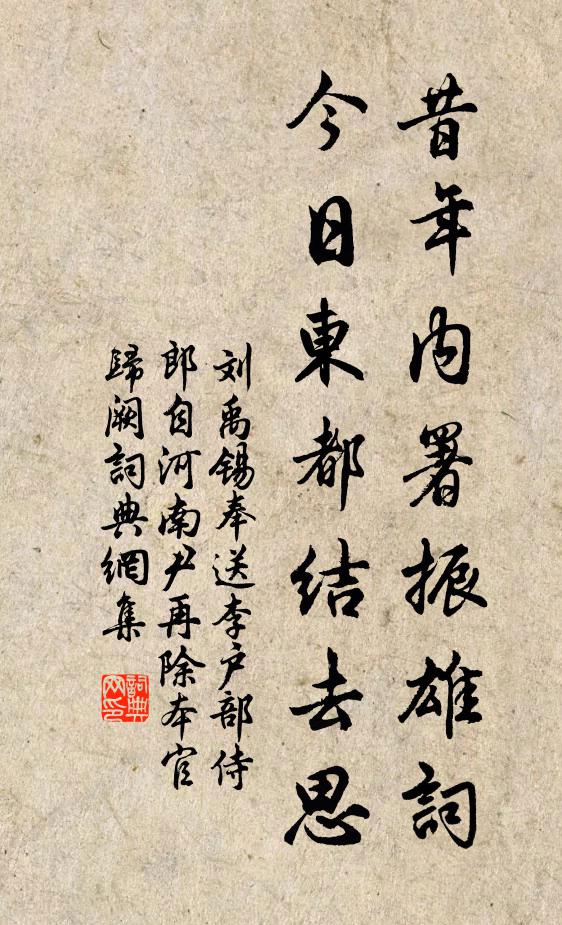 昔年内署振雄詞
今日東都結去思
刘禹錫奉送李户部侍
郎自河南尹再除本官
歸阙詞典網集
詞典
网印